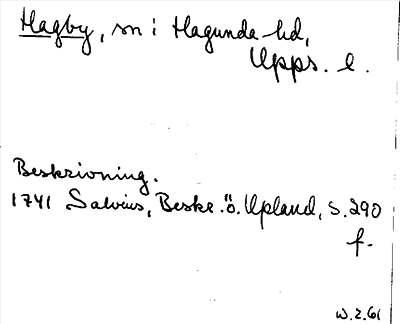 Hagby, sn i Hagunda hd,
Upps. l.
Beskrivning.
1741 Salvius, Beskr. ö. Upland, s. 290
f.
W. 2. 61